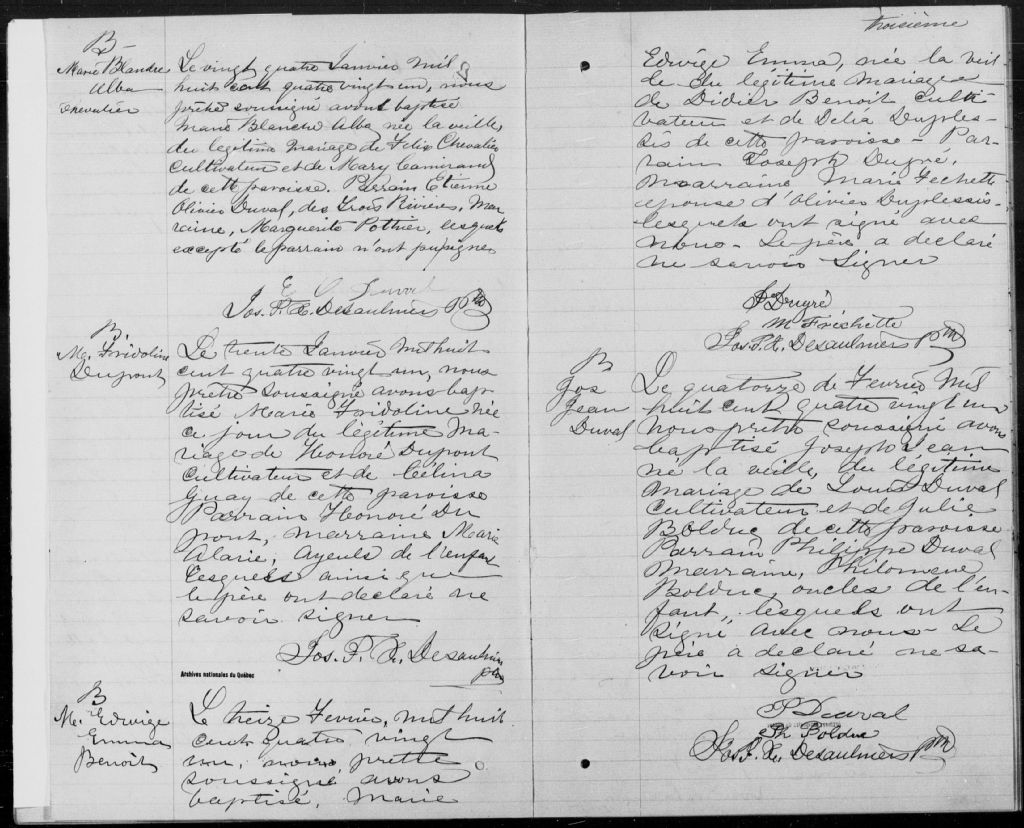 B
Marie Blanche
Alba
Chevalier
Le vingt quatre Janvier Mil
huit cent quatre vingt un, nous
prêtre soussigné avons baptisé
Marie Blanche Alba née la veille,
du légitime mariage de Félix Chevalier
Cultivateur et de Mary Camirand
de cette paroisse. Parrain Etienne
Olivier Duval, des Trois Rivières, Mar
raine, Marguerite Pothier, lesquels
excepté le parrain n'ont pu signer
E O Duval
Jos. F. X. Desaulniers Ptre
B.
M. Fridoline
Dupont
Le trente Janvier Mil huit
cent quatre vingt un, nous
prêtre soussigné avons bap
tisé Marie Fridoline née
ce jour du légitime Ma
riage de Honoré Dupont
Cultivateur et de Célina
Guay de cette paroisse
Parrain Honoré Du
pont, marraine Marie
Alarie, Ayeuls de l'enfant
Lesquels ainsi que
le père ont déclaré ne
savoir signer
Jos. F. X. Desaulniers
ptre
Archives nationales du Québec
B
M. Edwige
Emma
Benoit
Le treize Fevrier, mil huit
cent quatre vingt
un, nous prêtre
soussigné avons
baptisé, Marie
troisième
Edwige Emma, née la veil
le du légitime Mariage
de Didier Benoit culti
vateur et de Delia Duples-
sis de cette paroisse - Par-
rain Joseph Dugré,
Marraine Marie Fechette
epouse d'Olivier Duplessis-
lesquels ont signé avec
nous - Le père a declaré
ne savoir Signer
J Dugré
M Fréchette
Jos. F. X. Desaulniers Ptre
B
Jos
Jean
Duval
Le quatorze de Fevrier Mil
huit cent quatre vingt un
Nous prêtre soussigné avons
baptisé Joseph Jean
né la veille, du légitime
mariage de Louis Duval
Cultivateur et de Julie
Bolduc de cette paroisse
Parrain Philippe Duval
Marraine, Philomene
Bolduc, oncles de l'en-
fant, lesquels ont
signé avec nous - Le
père a déclaré ne sa-
voir signer
P Duval
Ph Bolduc
Jos. F. X. Desaulniers Ptre